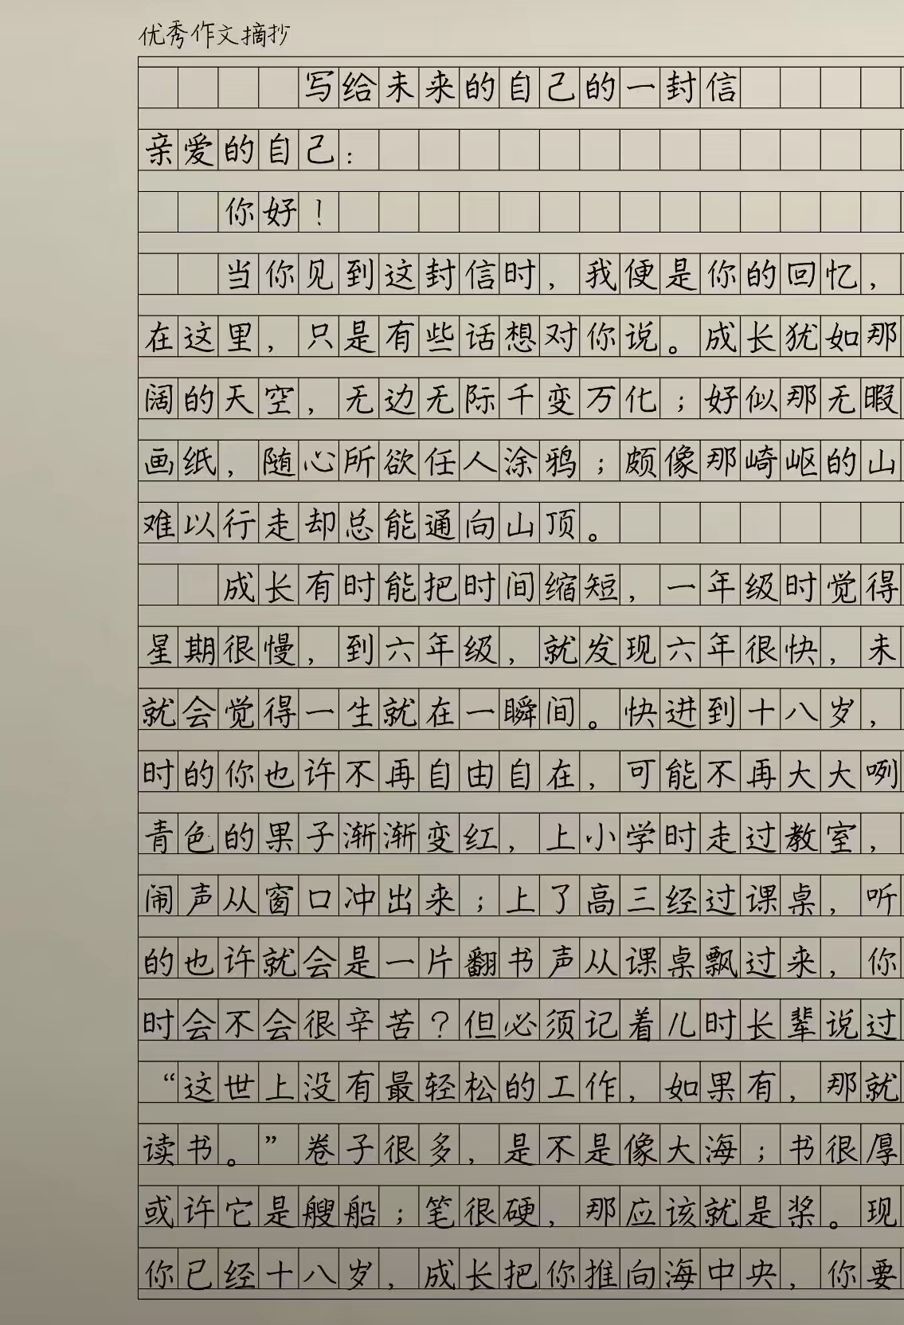 优秀作文摘抄
写给未来的自己的一封信
亲爱的自己：
你好！
当你见到这封信时，我便是你的回忆，
在这里，只是有些话想对你说。成长犹如那
阔的天空，无边无际千变万化；好似那无暇
画纸，随心所欲任人涂鸦；颇像那崎岖的山
难以行走却总能通向山顶。
成长有时能把时间缩短，一年级时觉得
星期很慢，到六年级，就发现六年很快，未
就会觉得一生就在一瞬间。快进到十八岁，
时的你也许不再自由自在，可能不再大大咧
青色的果子渐渐变红，上小学时走过教室，
闹声从窗口冲出来；上了高三经过课桌，听
的也许就会是一片翻书声从课桌飘过来，你
时会不会很辛苦？但必须记着儿时长辈说过
“这世上没有最轻松的工作，如果有，那就
读书。”卷子很多，是不是像大海；书很厚
或许它是艘船；笔很硬，那应该就是桨。现
你已经十八岁，成长把你推向海中央，你要